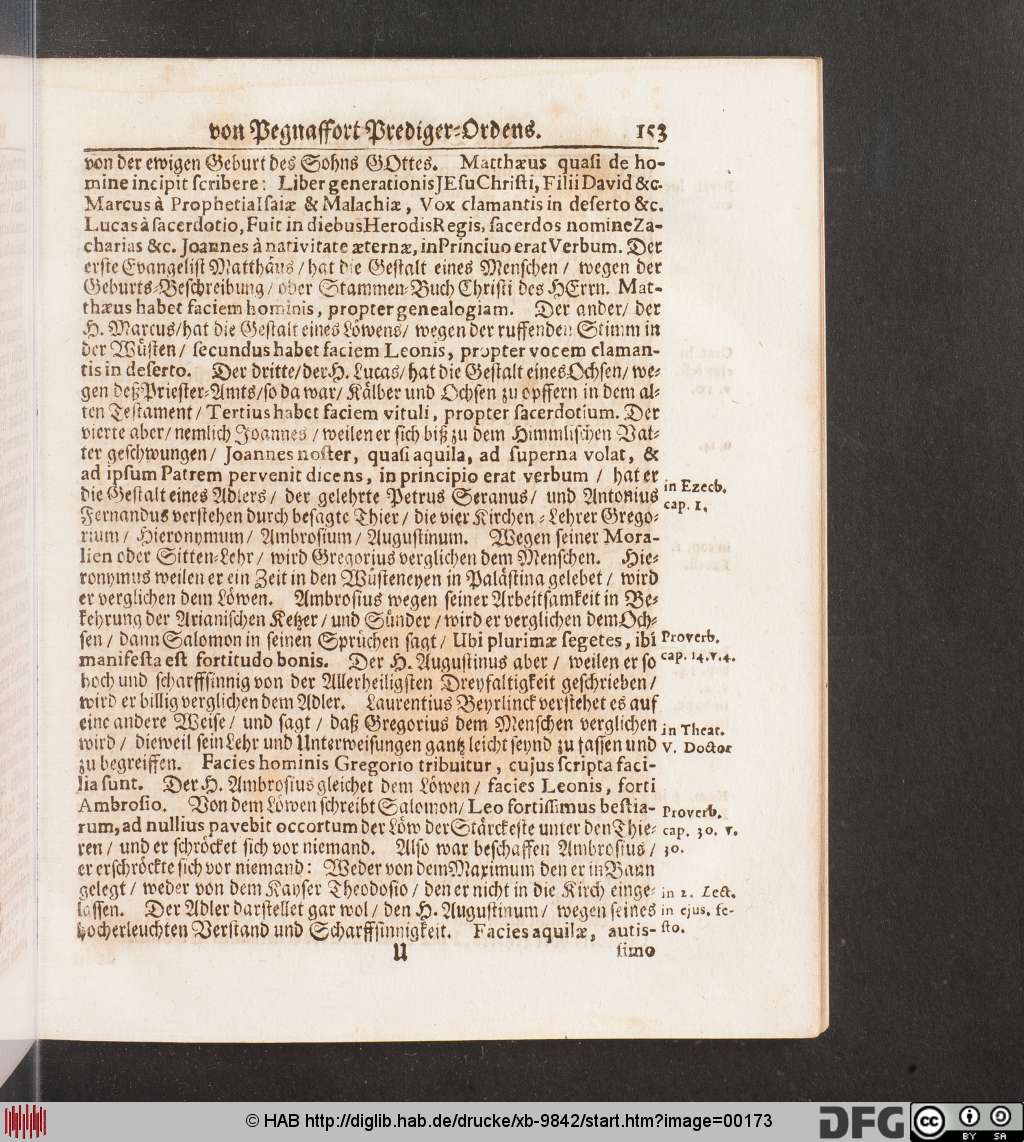 von Pegnaffort Prediger-Ordens. 153
von der ewigen Geburt des Sohns GOttes. Matthæus quasi de ho-
mine incipit scribere: Liber generationis JEsu Christi, Filii David &c.
Marcus à Prophetia Isaiæ & Malachiæ, Vox clamantis in deserto &c.
Lucas à sacerdotio, Fuit in diebus Herodis Regis, sacerdos nomine Za-
charias &c. Joannes à nativitate æternæ, in Princiuo erat Verbum. Der
erste Evangelist Matthäus / hat die Gestalt eines Menschen / wegen der
Geburts-Beschreibung / oder Stammen-Buch Christi des HErrn. Mat-
thæus habet faciem hominis, propter genealogiam. Der ander / der
H. Marcus / hat die Gestalt eines Löwens / wegen der ruffenden Stimm in
der Wüsten / secundus habet faciem Leonis, propter vocem claman-
tis in deserto. Der dritte / der H. Lucas / hat die Gestalt eines Ochsen / we-
gen deß Priester-Amts / so da war / Kälber und Ochsen zu opffern in dem al-
ten Testament / Tertius habet faciem vituli, propter sacerdotium. Der
vierte aber / nemlich Joannes / weilen er sich biß zu dem Himmlischen Vat-
ter geschwungen / Joannes noster, quasi aquila, ad superna volat, &
ad ipsum Patrem pervenit dicens, in principio erat verbum / hat er
die Gestalt eines Adlers / der gelehrte Petrus Seranus / und Antonius
Fernandus verstehen durch besagte Thier / die vier Kirchen-Lehrer Grego-
rium / Hieronymum / Ambrosium / Augustinum. Wegen seiner Mora-
lien oder Sitten-Lehr / wird Gregorius verglichen dem Menschen. Hie-
ronymus weilen er ein Zeit in den Wüsteneyen in Palästina gelebet / wird
er verglichen dem Löwen. Ambrosius wegen seiner Arbeitsamkeit in Be-
kehrung der Arianischen Ketzer / und Sünder / wird er verglichen dem Och-
sen / dann Salomon in seinen Sprüchen sagt / Ubi plurimæ segetes, ibi
manifesta est fortitudo bonis. Der H. Augustinus aber / weilen er so
hoch und scharffsinnig von der Allerheiligsten Dreyfaltigkeit geschrieben /
wird er billig verglichen dem Adler. Laurentius Beyrlinck verstehet es auf
eine andere Weise / und sagt / daß Gregorius dem Menschen verglichen
wird / dieweil sein Lehr und Unterweisungen gantz leicht seynd zu fassen und
zu begreiffen. Facies hominis Gregorio tribuitur, cujus scripta faci-
lia sunt. Der H. Ambrosius gleichet dem Löwen / facies Leonis, forti
Ambrosio. Von dem Löwen schreibt Salomon / Leo fortissimus bestia-
rum, ad nullius pavebit occortum der Löw der Stärckeste unter den Thie-
ren / und er schröcket sich vor niemand. Also war beschaffen Ambrosius /
er erschröckte sich vor niemand: Weder von dem Maximum den er in Bann
gelegt / weder von dem Kayser Theodosio / den er nicht in die Kirch einge-
lassen. Der Adler darstellet gar wol / den H. Augustinum / wegen seines
hocherleuchten Verstand und Scharffsinnigkeit. Facies aquilæ, autis-
U simo
in Ezech.
cap. 1.
Proverb.
cap. 14. v. 4.
in Theat.
V. Doctor
Proverb.
cap. 30. v.
30.
in 2. Lect.
in ejus. fe-
sto.
© HAB http://diglib.hab.de/drucke/xb-9842/start.htm?image=00173
DFG
cc BY SA